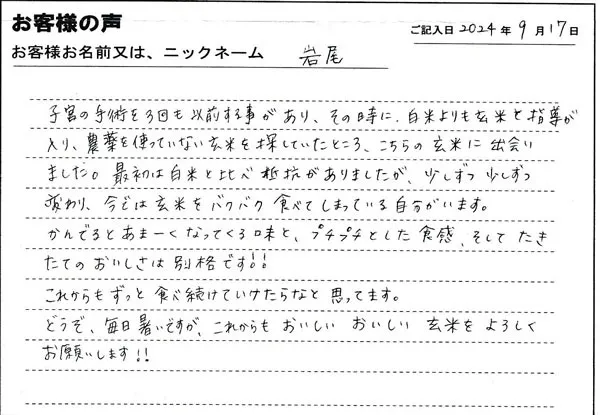 お客様の声
ご記入日 2024年 9月17日
お客様お名前又は、ニックネーム 岩尾
子宮の手術を3回も以前する事があり、その時に、白米よりも玄米と指導が
入り、農薬を使っていない玄米を探していたところ、こちらの玄米に出会い
ました。最初は白米と比べ抵抗がありましたが、少しずつ少しずつ
変わり、今では玄米をバクバク食べてしまっている自分がいます。
かんでるとあまーくなってくる味と、プチプチとした食感、そしてたき
たてのおいしさは別格です!!
これからもずっと食べ続けていけたらなと思ってます。
どうぞ、毎日暑いですが、これからもおいしいおいしい玄米をよろしく
お願いします!!